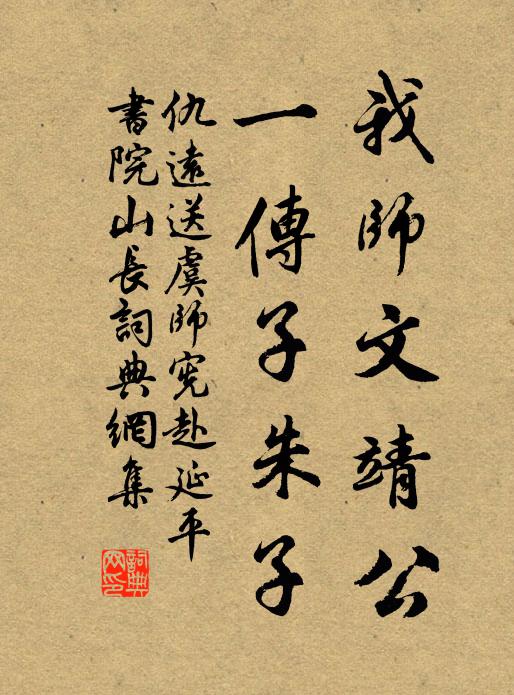 我師文靖公
一傳子朱子
仇遠送虞師憲赴延平
書院山長詞典網集
詞典网印